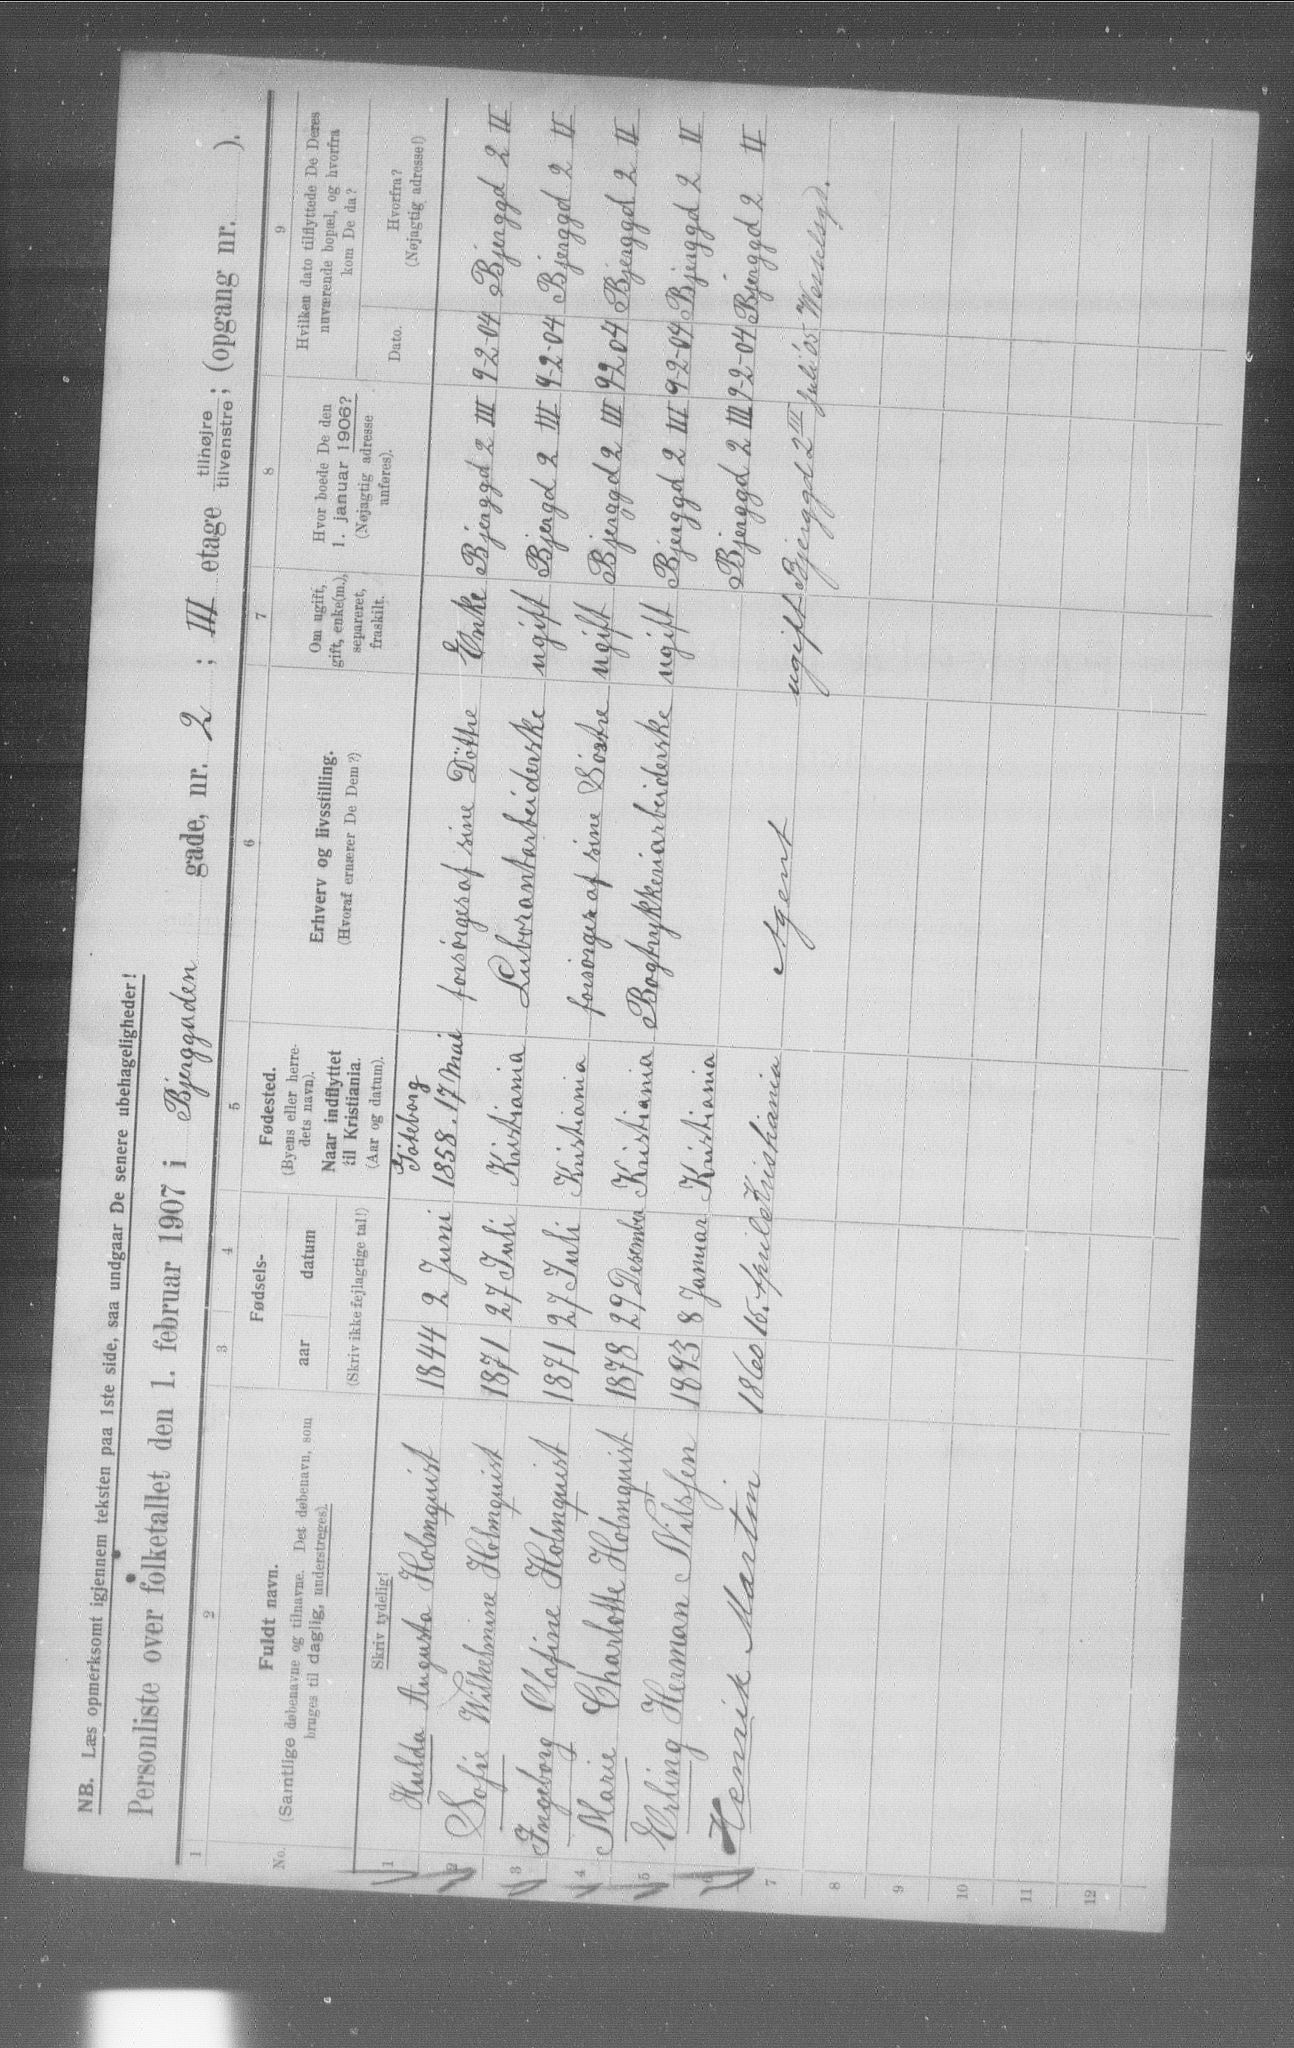 NB. Læs opmerksomt igjennem teksten paa 1ste side, saa undgaar De senere ubehageligheder!
Personliste over folketallet den 1. februar 1907 i Bjerggaden gade, nr. 2 ; III etage tilhøjre tilvenstre; (opgang nr. ).
1 2 3 4 5 6 7 8 9
No.
Fuldt navn.
(Samtlige døbenavne og tilnavne. Det døbenavn, som
bruges til daglig, understreges).
Skriv tydelig!
Fødsels-
aar datum
(Skriv ikke fejlagtige tal!)
Fødested.
(Byens eller herre-
dets navn).
Naar indflyttet
til Kristiania.
(Aar og datum).
Erhverv og livsstilling.
(Hvoraf ernærer De Dem?)
Om ugift,
gift, enke(m.),
separeret,
fraskilt.
Hvor boede De den
1. januar 1906?
(Nøjagtig adresse
anføres).
Hvilken dato tilflyttede De Deres
nuværende bopæl, og hvorfra
kom De da?
Dato.
Hvorfra?
(Nøjagtig adresse!)
Göteborg
1 Hulda Augusta Holmquist 1844 2 Juni 1858. 17 Mai forsörges af sine Döttre Enke Bjerggd 2 III 9-2-04 Bjerggd 2 II
2 Sofie Wilhelmine Holmquist 1871 27 Juli Kristiania Luborantarbeiderske ugift Bjergd 2 III 9-2-04 Bjerggd 2 II
3 Ingeborg Olafine Holmquist 1871 27 Juli Kristiania forsörges af sine Söstre ugift Bjerggd 2 III 9204 Bjerggd 2 II
4 Marie Charlotte Holmquist 1878 29 Desember Kristiania Bogtrykkeriarbeiderske ugift Bjerggd 2 III 9-2-04 Bjerggd 2 II
5 Erling Herman Nilssen 1893 8 Januar Kristiania Bjerggd 2 III 9-2-04 Bjerggd 2 II
6 Henrik Martin 1860 15. April Kristiania Agent ugift Bjerggd 2 III Juli 05 Wesselsgd.
7
8
9
10
11
12